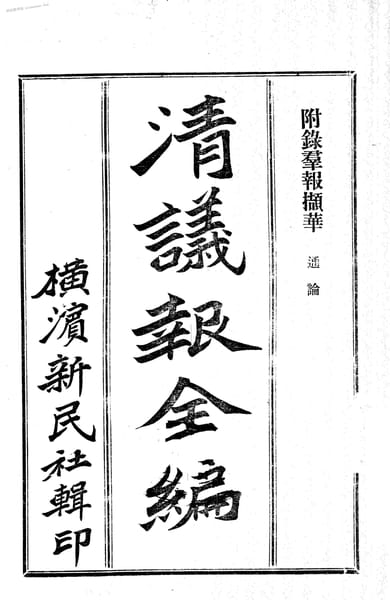 附錄羣報擷華 通論
清議報全編
橫濱新民社輯印